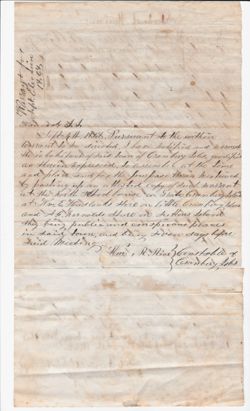 Warrant for
Sept. Election
1864
Hancock S.S.
Sept 4th 1864. Pursuant to the within
warrant to me directed I have notified and warned
the inhabitants of said town of Cranberry Isles qualified
as therein expressed to assemble at the time
and place and for the purpose therein mentioned
by posting up an attested copy of said warrant
at the
at Wm E Hadlocks store on little Cranberry Isles
and store on Suttons Island
they being public and conspicuous places
in said town, and being seven days before
said Meeting
Wm R Rice } Constable of
Cranberry Isles